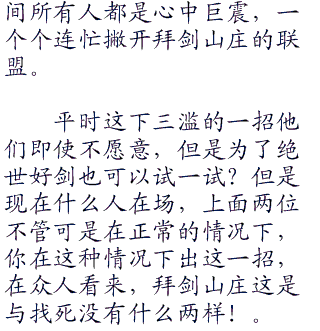 间所有人都是心中巨震，一
个个连忙撇开拜剑山庄的联
盟。
平时这下三滥的一招他
们即使不愿意，但是为了绝
世好剑也可以试一试？但是
现在什么人在场，上面两位
不管可是在正常的情况下，
你在这种情况下出这一招，
在众人看来，拜剑山庄这是
与找死没有什么两样！。